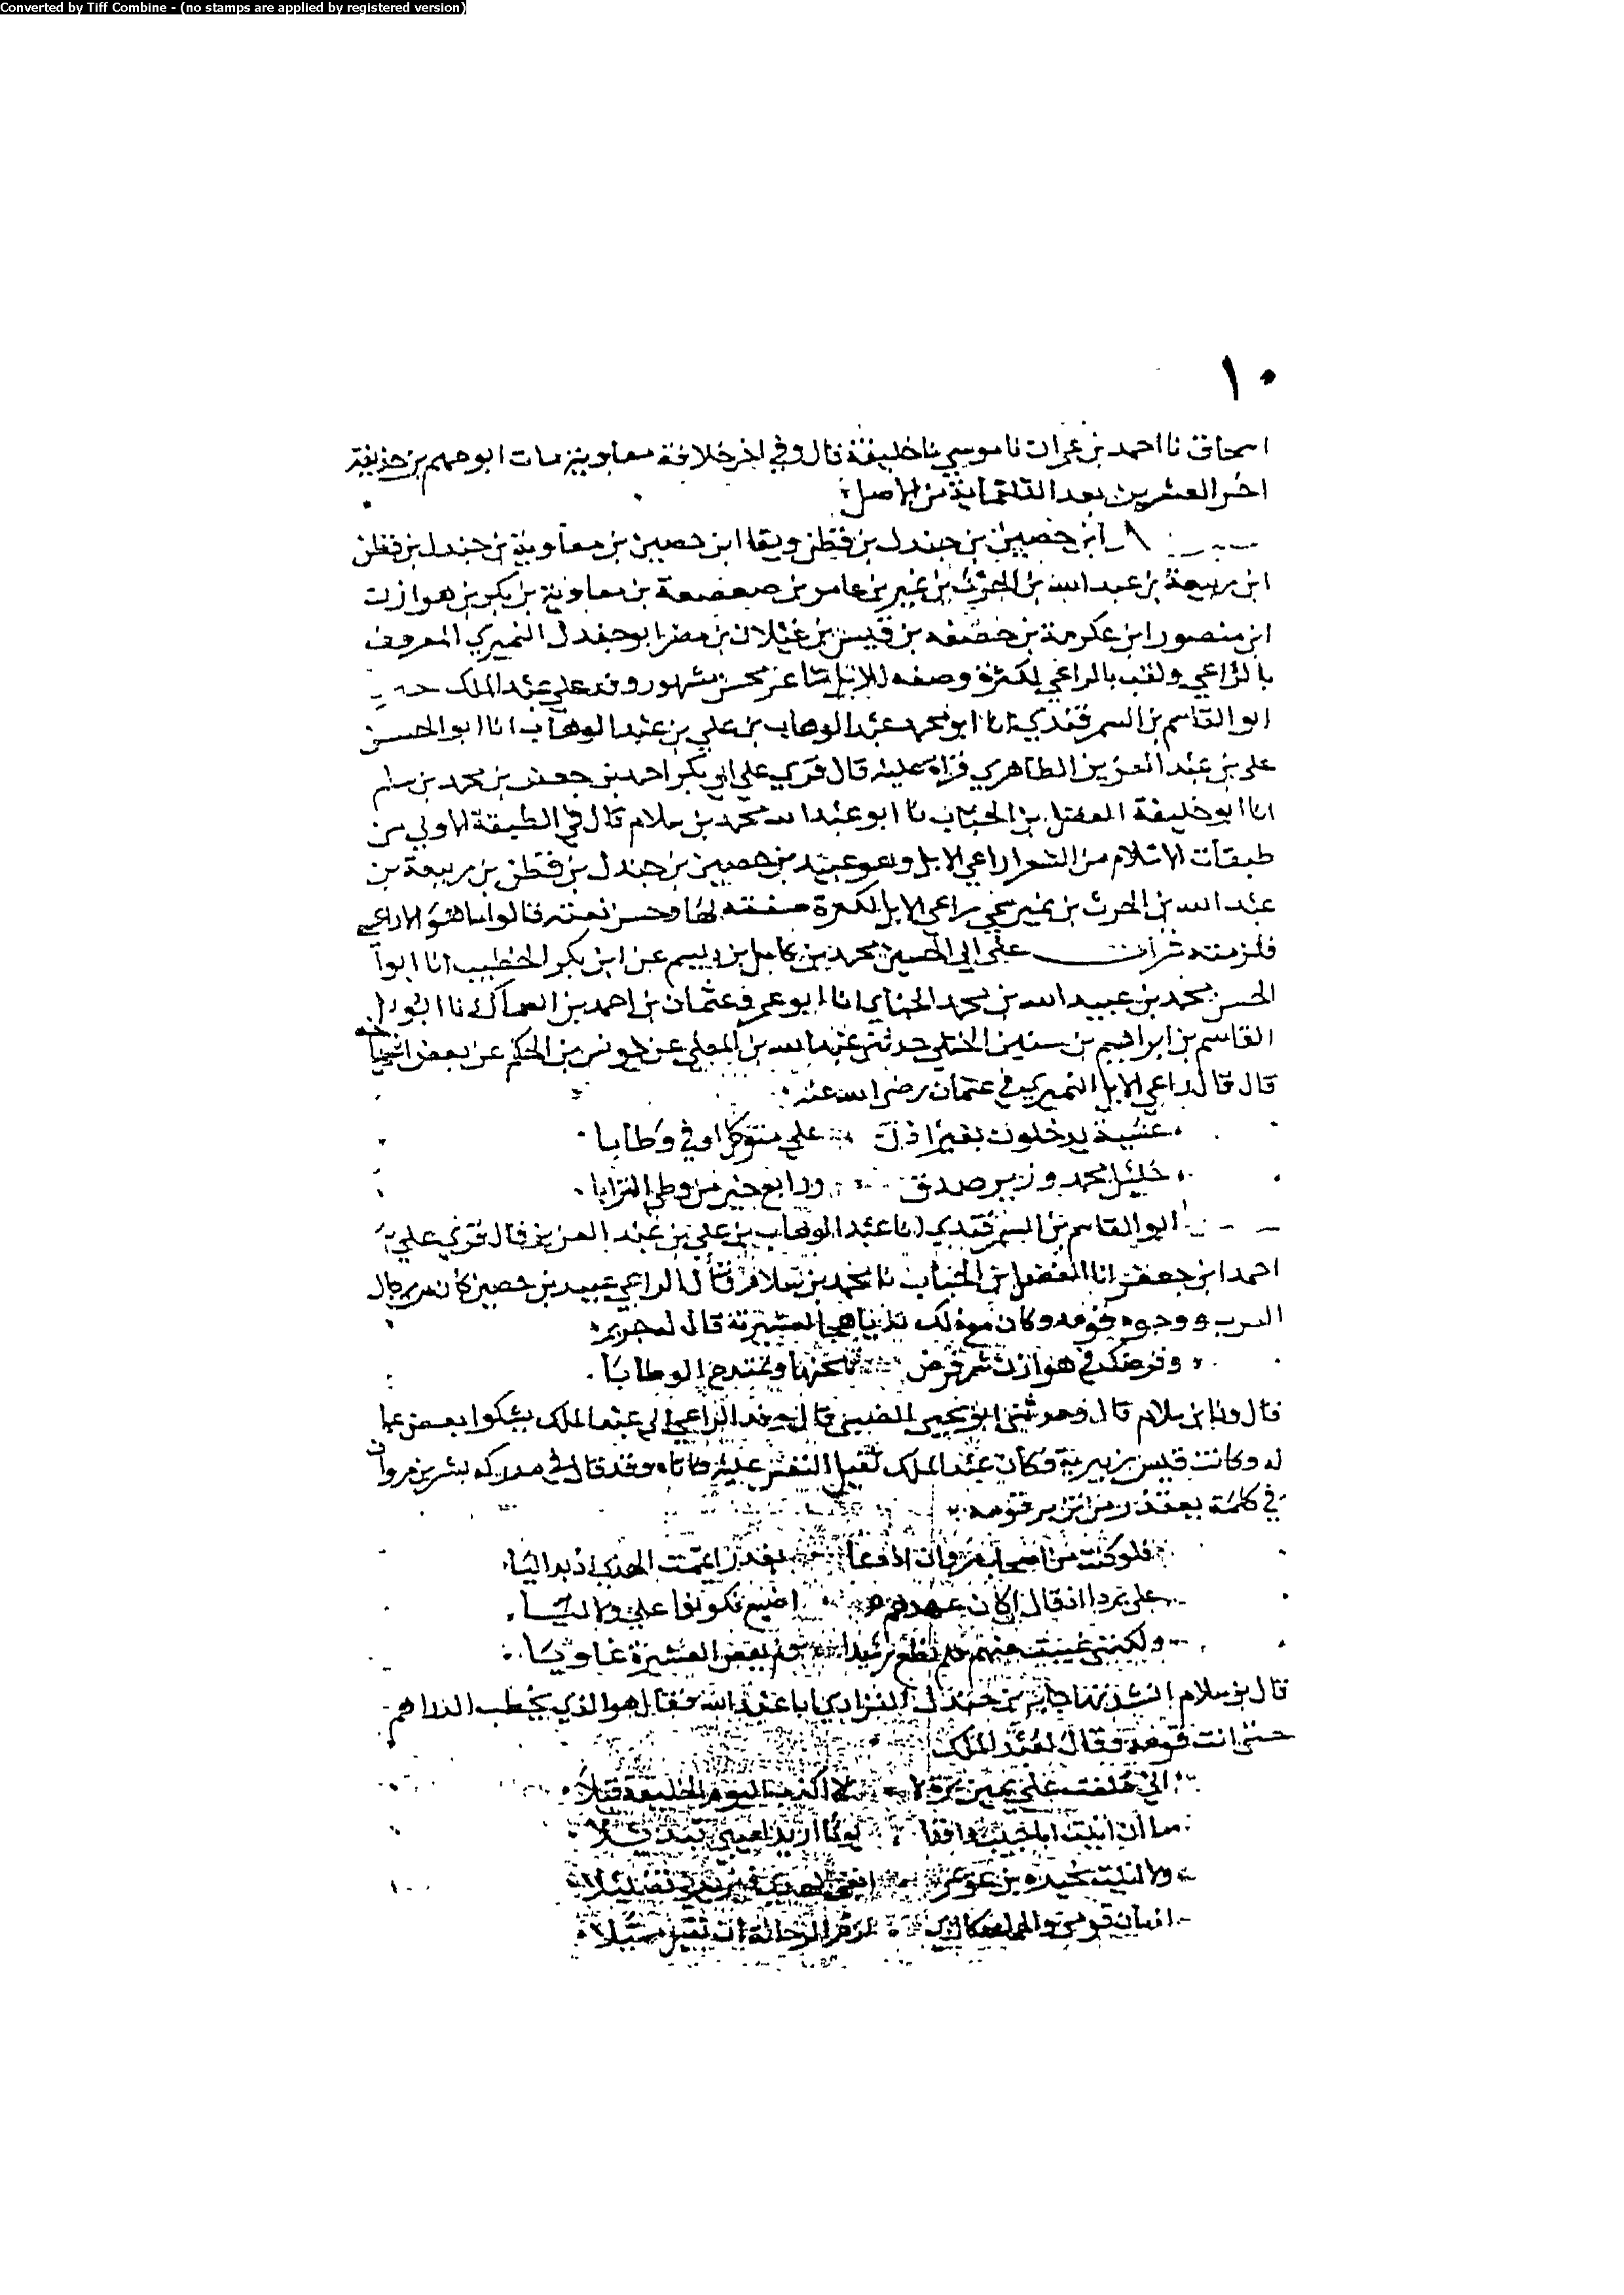 Converted by Tiff Combine - (no stamps are applied by registered version)
١٠
اسحاق نا احمد بن عمران نا موسي نا خليفة قال وفي اخر خلافة معاوية مات ابو جهم بن حذيفة
اخر العشرين بعد الثلثماية من الاصل
ابن حصين بن جندل بن قطن ويقا ابن حصين بن معاوية بن جندل بن قطن
ابن ربيعة بن عبد الله بن الحرث بن نمير بن عامر بن صعصعة بن معاوية بن بكر بن هوازن
ابن منصور ابن عكرمة بن خصفه بن قيس بن غيلان بن مضر ابو جندل النميري المعروف
بالراعي ولقب بالراعي لكثرة وصفه للابل شاعر محسن مشهور وفد علي عبد الملك
ابو القاسم بن السمرقندي انا ابو محمد عبد الوهاب بن علي بن عبد الوهاب انا ابو الحسن
علي بن عبد العزيز الطاهري قراة عليه قال قري علي ابي بكر احمد بن جعفر بن محمد بن سلم
انا ابو خليفة الفضل بن الحباب نا ابو عبد الله محمد بن سلام قال في الطبقة الاولي من
طبقات الاسلام من الشعرا راعي الابل وهو عبيد بن حصين بن جندل بن قطن بن ربيعة بن
عبد الله بن الحرث بن نمير سمي راعي الابل لكثرة صفته لها وحسن نعته قالوا ما هو الا راعي
فلزمته قرات علي ابي الحسين محمد بن كامل بن ديسم عن ابي بكر الخطيب انا ابو
الحسن محمد بن عبيد الله بن محمد الحناي انا ابو عمرو عثمان بن احمد بن السماك نا ابو
القاسم بن ابراهيم بن سنين الختلي حدثني عبد الله بن المعلي عن يونس بن الحكم عن بعض
قال قال راعي الابل النميري في عثمان رضي الله عنه
عشية يدخلون بغير اذن علي متوكل اوفي وطابا
خليل محمد وزير صدق ورابع خير من وطي الترابا
ابو القاسم بن السمرقندي انا عبد الوهاب بن علي بن عبد العزيز قال قري علي
احمد ابن جعفر انا الفضل بن الحباب نا محمد بن سلام قال الراعي عبيد بن حصين كان من رجال
العرب ووجوه قومه وكان مع ذلك بذيا هجا لعشيرته قال له جرير
وقرضك في هوازن شر قرض تهجنها وتمتدح الوطابا
قال ونا ابن سلام قال وحدثني ابو يحيي الضبي قال وفد الراعي الي عبد الملك يشكوا بعض عما
له وكانت قيس زبيرية وكان عبد الملك ثقيل النفس عليه فاتاه وقد قال في مدركه بشر بن مروان
في كلمة يعتذر من قومه
فلو كنت من اصحاب مروان اذ دعا بعذراء يممت الهدي اذ بدا ليا
علي بردا اذ قال ان كان عهدهم اضيع فكونوا علي ولا ليا
ولكنني غيبت عنهم فلم نطع رشيدا ولم بعض العشيرة غاويا
قال بن سلام انشدتها جابر بن جندل الفزاري ابا عبد الله فقال هو الذي يخطب الدراهم
حتي انت قومه وقال لعبد الملك
اني حلفت علي يمين برة لا اكذب اليوم الخليفة قيلا
ما ان اتيت ابا خبيب وافدا يوما اريد لبيعتي تبديلا
ولا اتيت نجيده بن عويمر ابغي الهدي فيزيدني تضليلا
ازمان قومي والجماعة كالذي لزم الرحالة ان تميل مميلا